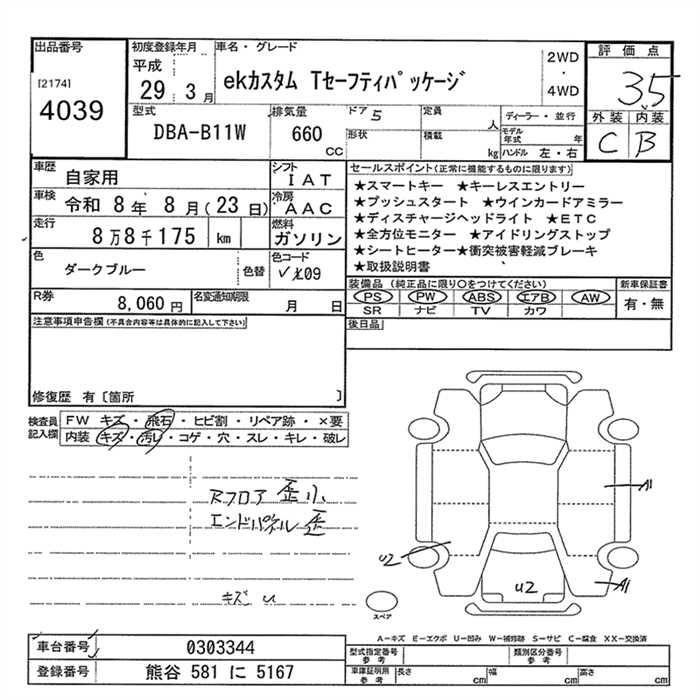 出品番号
[2174]
4039
初度登録年月
平成
29年3月
車名・グレード
ekカスタム Tセーフティパッケージ
2WD
・
4WD
評価点
3.5
外装 内装
C B
型式
DBA-B11W
排気量
660
cc
ドア 5
形状
定員
人
積載
kg
ディーラー・並行
モデル年式 年
ハンドル 左・右
車歴
自家用
シフト
IAT
車検
令和 8年 8月(23日)
冷房
AAC
走行
8万8千175 km
燃料
ガソリン
色
ダークブルー
色替
色コード
X09
R券
8,060円
名変通知期限
月 日
セールスポイント(正常に機能するものに限ります)
★スマートキー ★キーレスエントリー
★プッシュスタート ★ウインカードアミラー
★ディスチャージヘッドライト ★ETC
★全方位モニター ★アイドリングストップ
★シートヒーター★衝突被害軽減ブレーキ
★取扱説明書
装備品 (純正品に限り○をつけてください)
新車保証書
PS PW ABS エアB AW
SR ナビ TV カワ
有・無
後日品
注意事項申告欄(不具合内容等は具体的に記入して下さい)
修復歴 有〔箇所 〕
検査員
記入欄
FW キズ・飛石・ヒビ割・リペア跡・×要
内装 キズ・汚レ・コゲ・穴・スレ・キレ・破レ
Rフロア 歪小
エンドパネル 歪
キズ U
A1
U2
U2
A1
スペア
A−キズ E−エクボ U−凹み W−補修跡 S−サビ C−腐食 XX−交換済
車台番号
0303344
登録番号
熊谷 581 に 5167
型式指定番号
参考
類別区分番号
参考
車庫証明用
参考
長さ cm
幅 cm
高さ cm